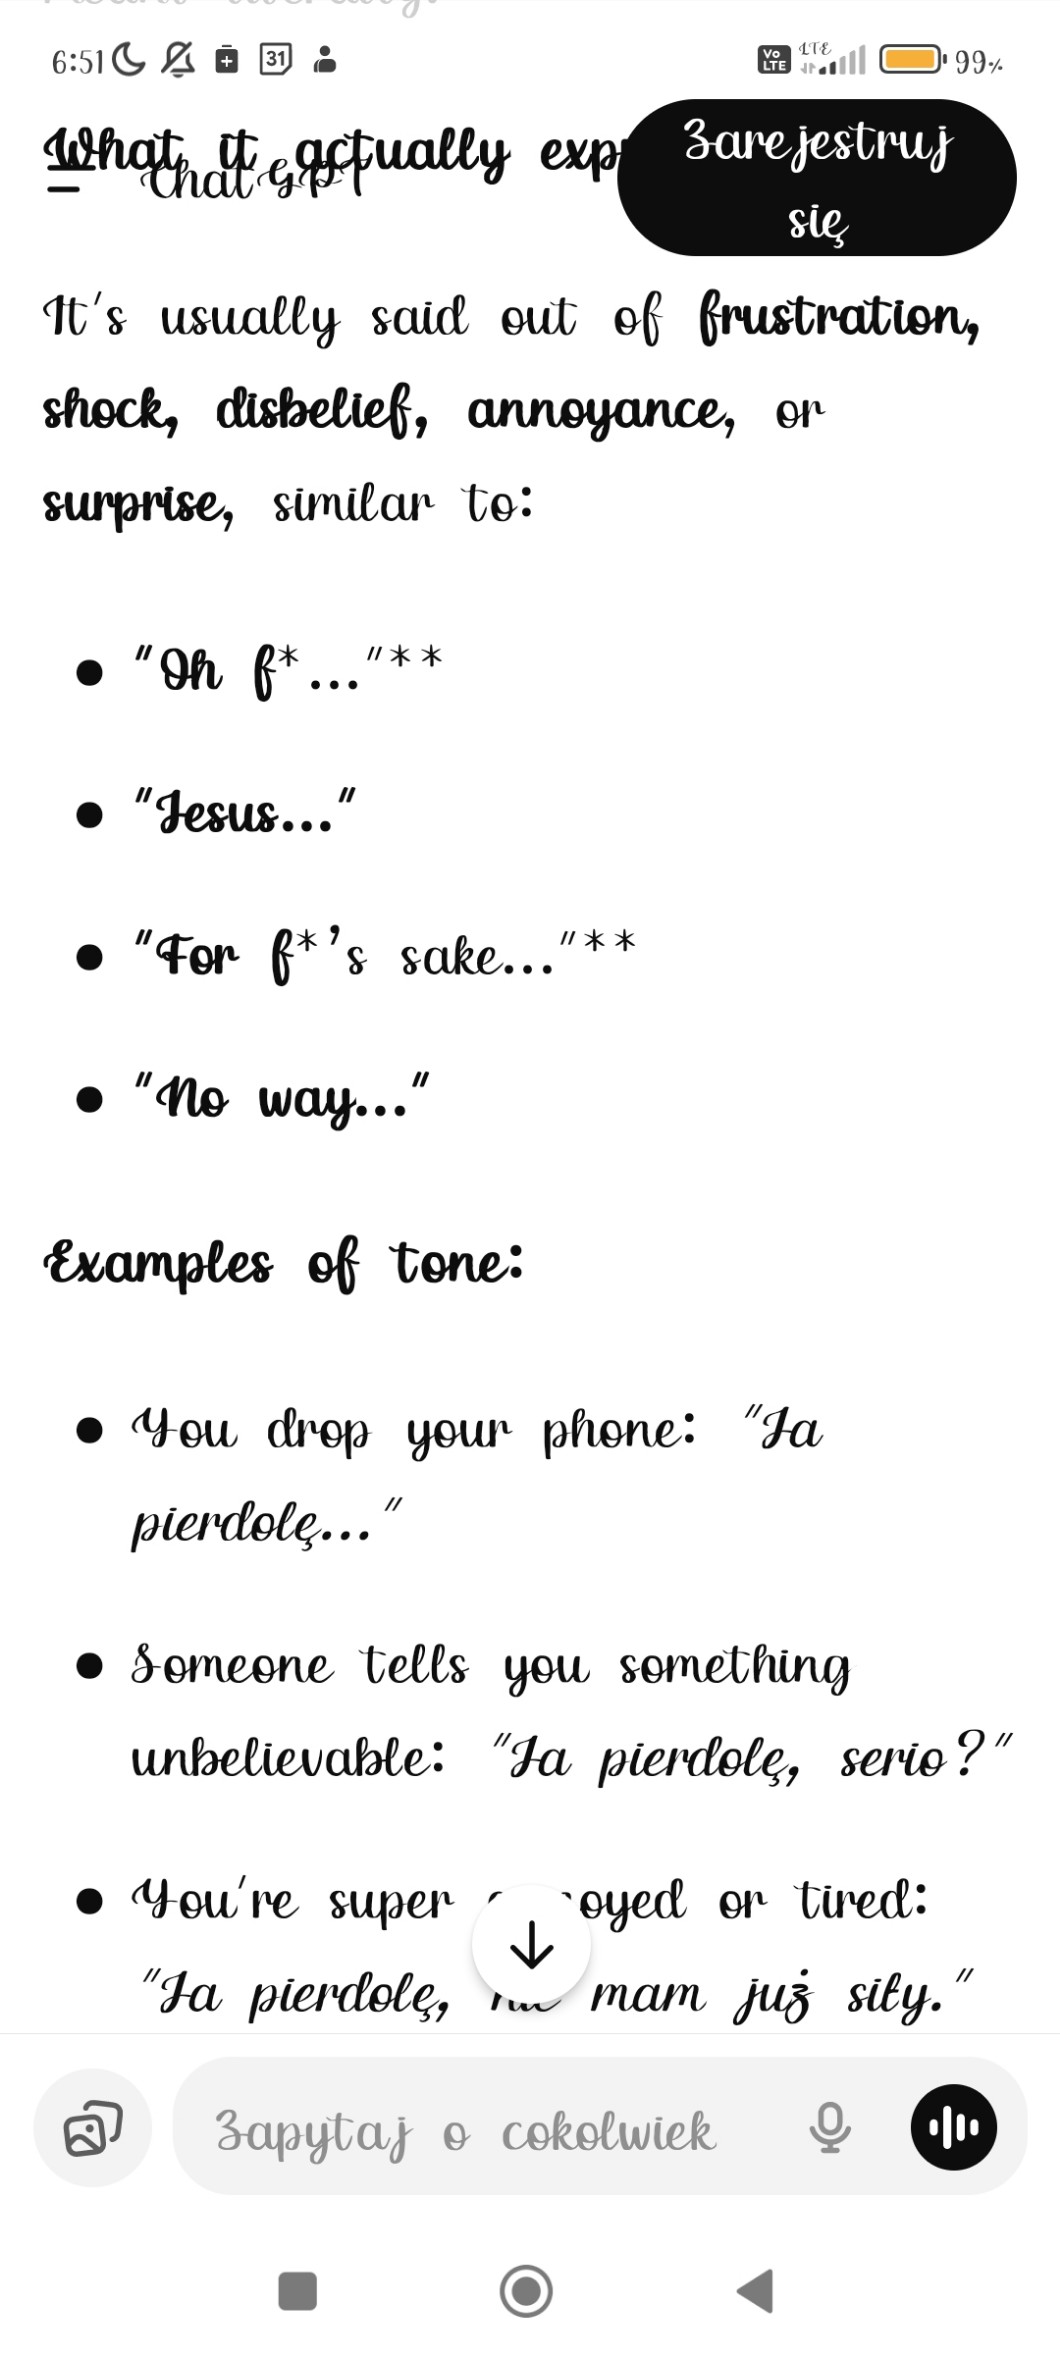 6:51 31 Vo LTE LTE 99%
What it actually exp
ChatGPT
Zarejestruj
się
It's usually said out of frustration,
shock, disbelief, annoyance, or
surprise, similar to:
"Oh f*..."**
"Jesus..."
"For f*'s sake..."**
"No way..."
Examples of tone:
You drop your phone: "Ja
pierdolę..."
Someone tells you something
unbelievable: "Ja pierdolę, serio?"
You're super oyed or tired:
"Ja pierdolę, mam już siły."
Zapytaj o cokolwiek